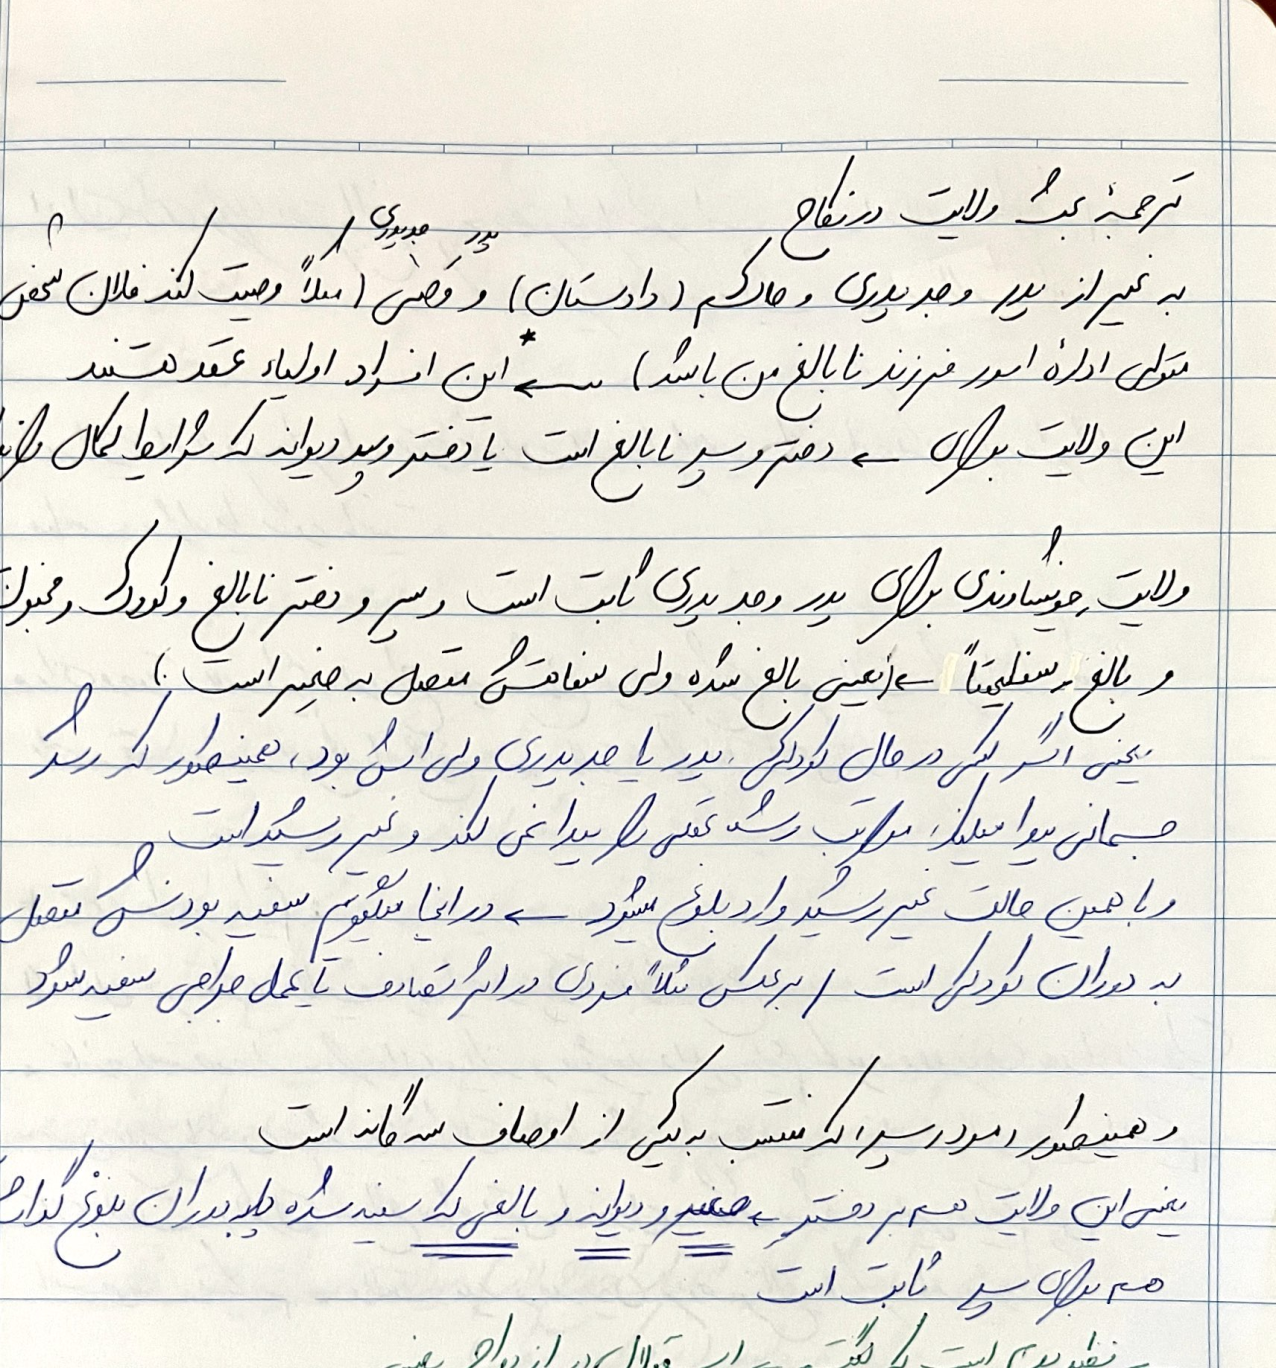 ترجمهٔ بحث ولایت در نکاح
پدر جد پدری
به غیر از پدر و جد پدری و حاکم (دادستان) و وصی (مثلاً وصیت کند فلان شخص
متولی ادارهٔ امور فرزند نابالغ من باشد) ← *این افراد اولیاء عقد هستند
این ولایت برای ← دختر و پسر نابالغ است یا دختر و پسر دیوانه که شرایط کمال را
ولایت خویشاوندی برای پدر و جد پدری ثابت است و پسر و دختر نابالغ و کودک و مجنون
و بالغ سفیهتاً ← (یعنی بالغ شده ولی سفاهتش متصل به صغیر است)
یعنی اگر کسی در حال کودکی، پدر یا جد پدری ولی اش بود، همینطور که رشد
جسمانی پیدا میکند، مراتب رشد عقلی را پیدا نمی کند و غیر رشید است
و با همین حالت غیر رشید وارد بلوغ میشود ← در اینجا میگوییم سفیه بودنش متصل
به دوران کودکی است / برعکس مثلاً فردی در اثر تصادف یا عمل جراحی سفیه شود
و همینطور در مورد پسر، که منتسب به یکی از اوصاف سه گانه است
یعنی این ولایت هم بر دختر ← صغیر و دیوانه و بالغی که سفیه شده و به دوران بلوغ
هم برای پسر ثابت است
است که در ازدواج